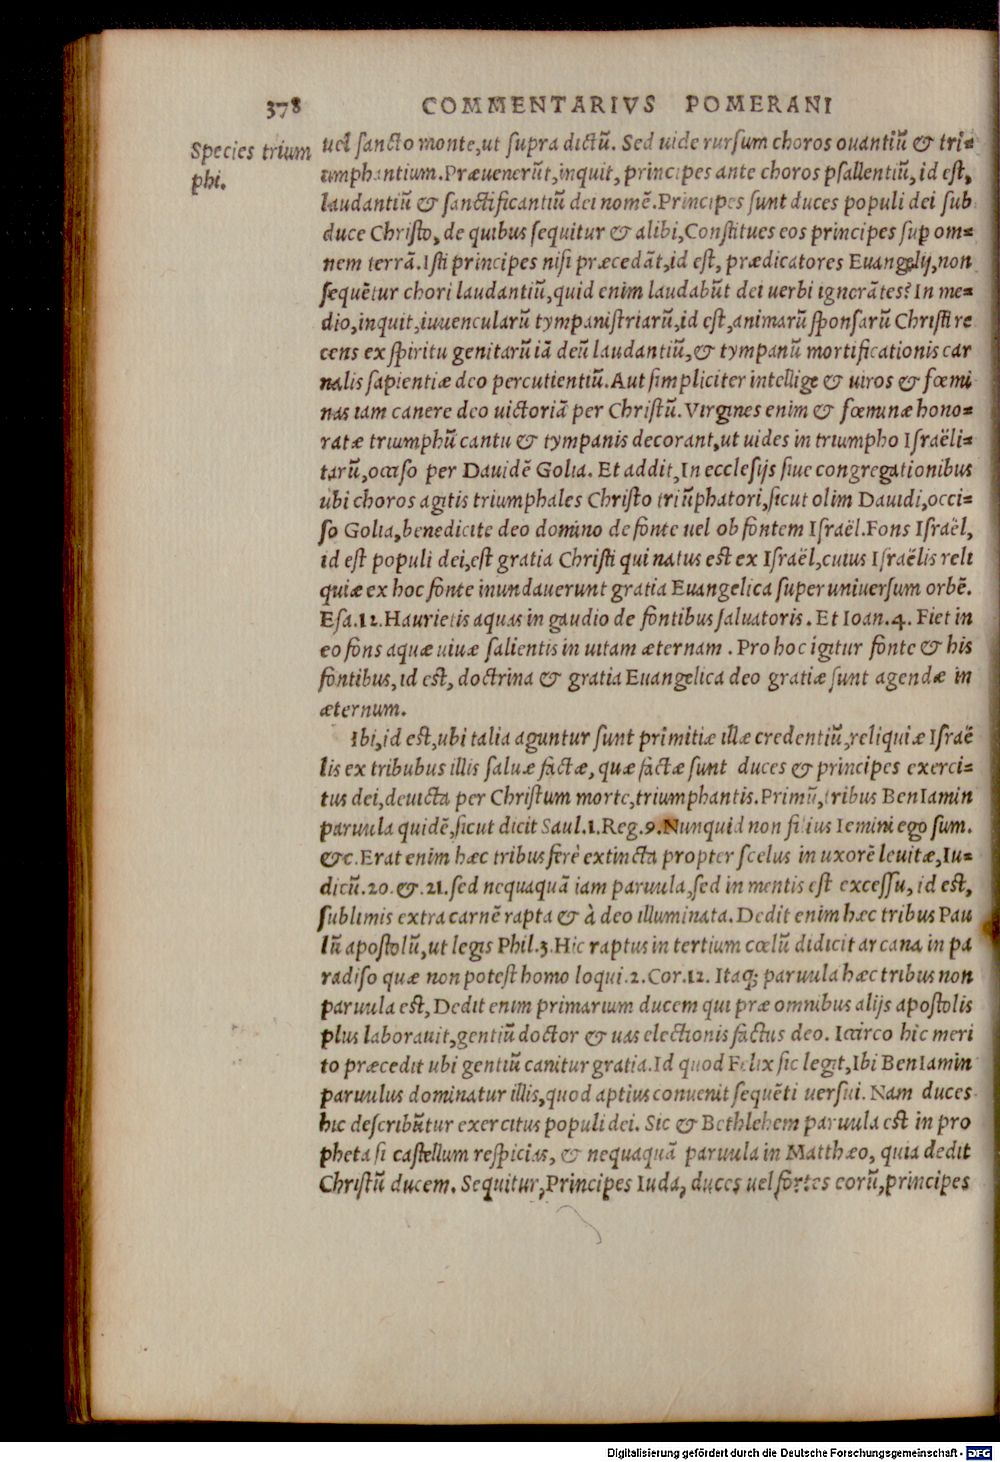 378 COMMENTARIVS POMERANI
Species trium
phi.
uel sancto monte,ut supra dictũ. Sed uide rursum choros ouantiũ & tri=
umphantium.Præuenerũt,inquit, principes ante choros psallentiũ, id est,
laudantiũ & sanctificantiũ dei nomẽ.Principes sunt duces populi dei sub
duce Christo, de quibus sequitur & alibi,Constitues eos principes sup om=
nem terrã.Isti principes nisi præcedãt,id est, prædicatores Euangelij,non
sequẽtur chori laudantiũ,quid enim laudabũt dei uerbi ignorãtes? In me=
dio,inquit,iuuencularũ tympanistriarũ,id est,animarũ sponsarũ Christi re
cens ex spiritu genitarũ iã deũ laudantiũ,& tympanũ mortificationis car
nalis sapientiæ deo percutientiũ.Aut simpliciter intellige & uiros & fœmi
nas iam canere deo uictoriã per Christũ.Virgines enim & fœminæ hono=
ratæ triumphũ cantu & tympanis decorant,ut uides in triumpho Israëli=
tarũ,occiso per Dauidẽ Golia. Et addit,In ecclesijs siue congregationibus
ubi choros agitis triumphales Christo triũphatori,sicut olim Dauidi,occi=
so Golia,benedicite deo domino de fonte uel ob fontem Israël.Fons Israël,
id est populi dei,est gratia Christi qui natus est ex Israël,cuius Israëlis reli
quiæ ex hoc fonte inundauerunt gratia Euangelica super uniuersum orbẽ.
Esa.12.Haurietis aquas in gaudio de fontibus saluatoris. Et Ioan.4. Fiet in
eo fons aquæ uiuæ salientis in uitam æternam . Pro hoc igitur fonte & his
fontibus, id est, doctrina & gratia Euangelica deo gratiæ sunt agendæ in
æternum.
Ibi,id est,ubi talia aguntur sunt primitiæ illæ credentiũ,reliquiæ Israë
lis ex tribubus illis saluæ factæ, quæ factæ sunt duces & principes exerci=
tus dei,deuicta per Christum morte,triumphantis.Primũ,tribus BenIamin
paruula quidẽ,sicut dicit Saul.1.Reg.9.Nunquid non filius Iemini ego sum.
&c.Erat enim hæc tribus ferè extincta propter scelus in uxorẽ leuitæ,Iu=
dicũ.20.&.21.sed nequaquã iam paruula,sed in mentis est excessu, id est,
sublimis extra carnẽ rapta & à deo illuminata. Dedit enim hæc tribus Pau
lũ apostolũ,ut legis Phil.3.Hic raptus in tertium cœlũ didicit arcana in pa
radiso quæ non potest homo loqui.2.Cor.12. Itaq; paruula hæc tribus non
paruula est, Dedit enim primarium ducem qui præ omnibus alijs apostolis
plus laborauit,gentiũ doctor & uas electionis factus deo. Icirco hic meri
to præcedit ubi gentiũ canitur gratia.Id quod Felix sic legit,Ibi BenIamin
paruulus dominatur illis,quod aptius conuenit sequẽti uersui. Nam duces
hic describũtur exercitus populi dei. Sic & Bethlehem paruula est in pro
pheta si castellum respicias, & nequaquã paruula in Matthæo, quia dedit
Christũ ducem. Sequitur,Principes Iuda, duces uel fortes eorũ,principes
Digitalisierung gefördert durch die Deutsche Forschungsgemeinschaft - DFG